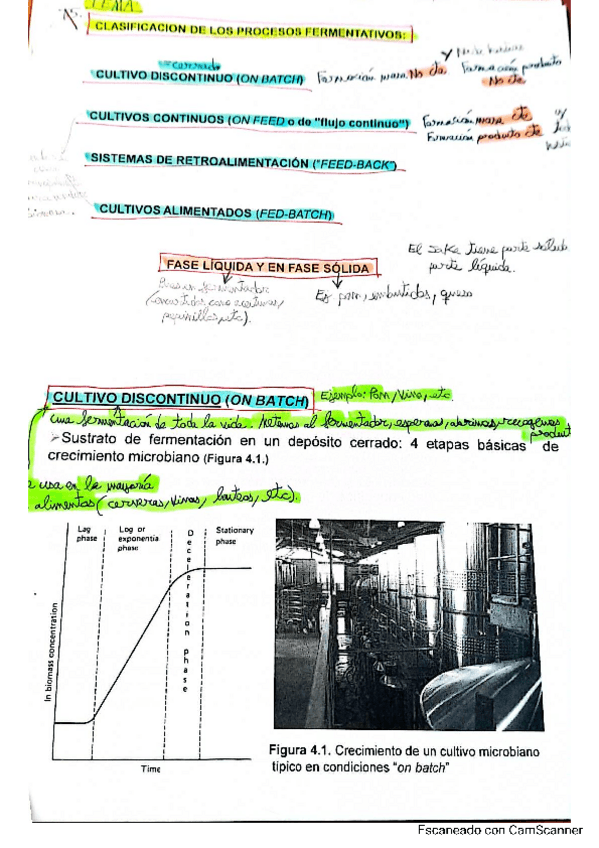 TEMA
CLASIFICACION DE LOS PROCESOS FERMENTATIVOS:
CULTIVO DISCONTINUO (ON BATCH) Formación masa No cte. Formación producto No cte
CULTIVOS CONTINUOS (ON FEED o de "flujo continuo") Formación masa cte
Formación producto cte
SISTEMAS DE RETROALIMENTACIÓN ("FEED-BACK")
CULTIVOS ALIMENTADOS (FED-BATCH)
El sake tiene parte sólida
parte líquida.
FASE LÍQUIDA Y EN FASE SÓLIDA
Ej pan, embutidos, queso
pepinillos, etc).
CULTIVO DISCONTINUO (ON BATCH) Ejemplo: Pan, Vino, etc.
una fermentación de toda la vida. Metemos al fermentador, esperas, abrimos y recogemos
product
➢Sustrato de fermentación en un depósito cerrado: 4 etapas básicas de
crecimiento microbiano (Figura 4.1.)
usa en la mayoría
alimentos (cervezas, vinos, lácteos, etc).
Lag phase
Log or exponential phase
Deceleration phase
Stationary phase
ln biomass concentration
Time
Figura 4.1. Crecimiento de un cultivo microbiano
típico en condiciones "on batch"
Escaneado con CamScanner